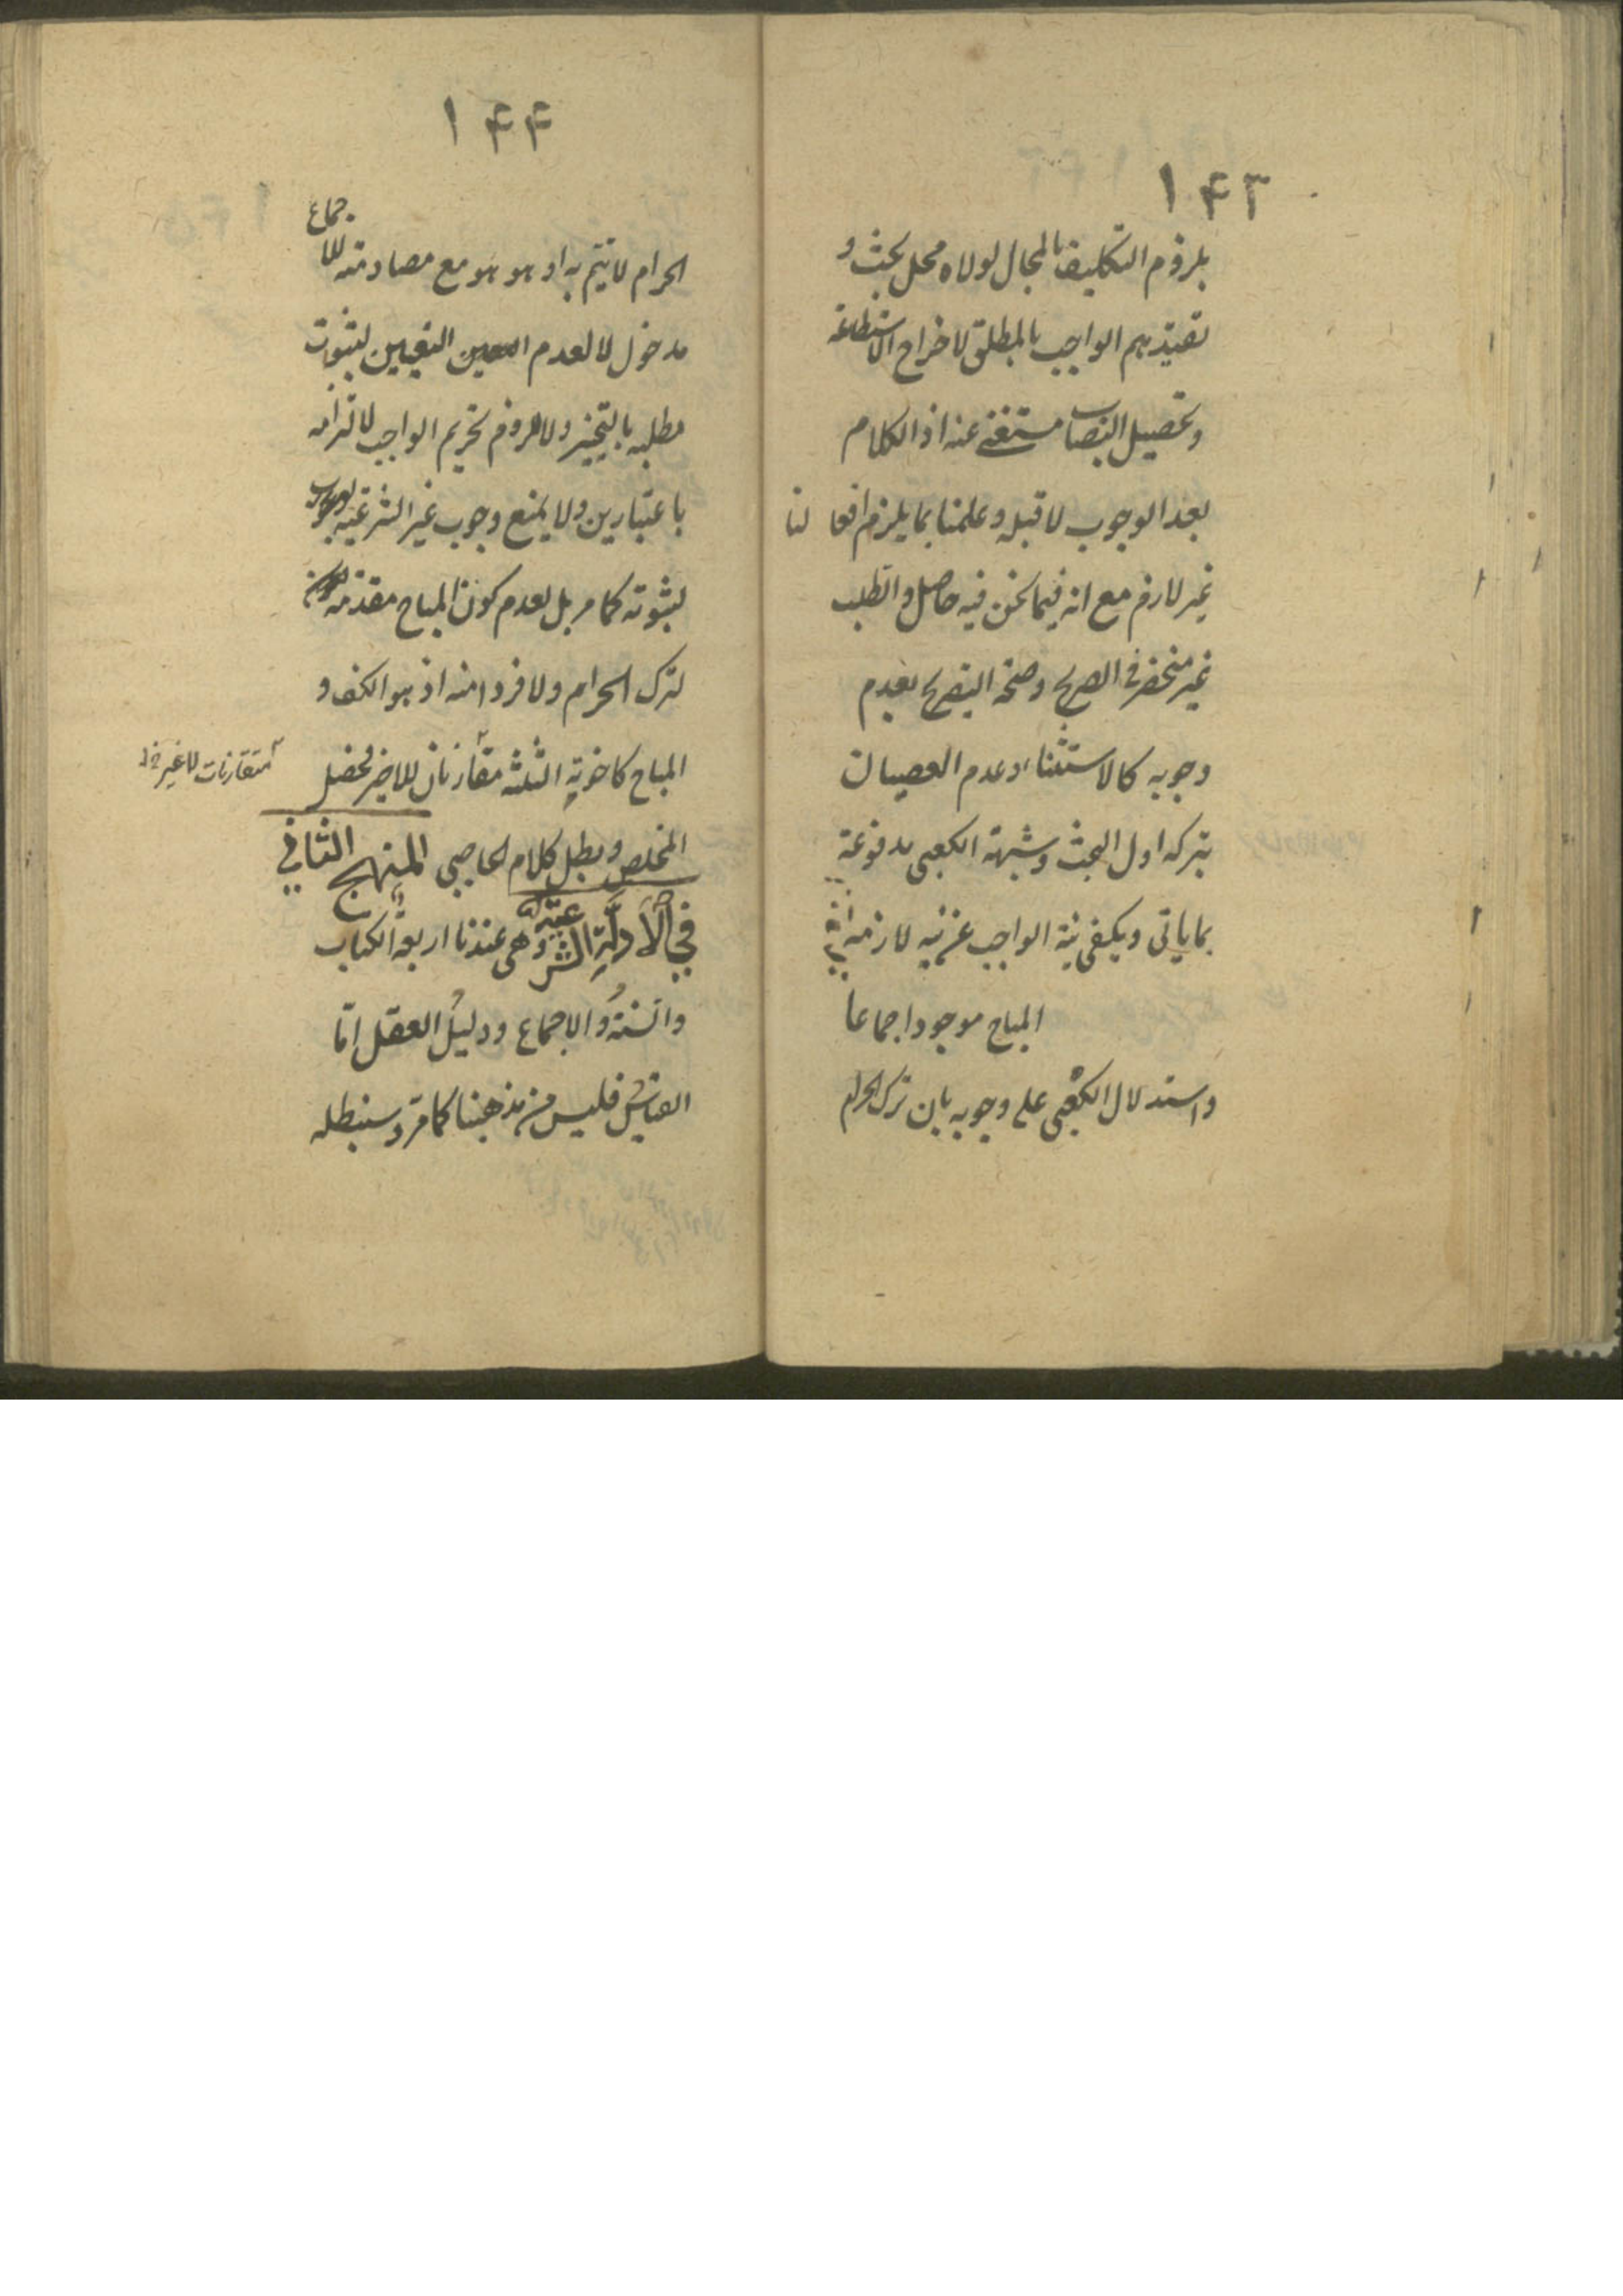 ١۴٣
بلزوم التكليف بالمحال لولاه محل بحث و
تقييدهم الواجب بالمطلق لاخراج الاستطاعة
وتحصيل النصاب مستغنى عنه اذ الكلام
بعد الوجوب لا قبله وعلمنا بما يلزم افعا لنا
غير لازم مع انه فيما نحن فيه حاصل والطلب
غير منحصر فى الصريح وصحة التصريح بعدم
وجوبه كالاستثناء وعدم العصيان
بتركه اول البحث وشبهة الكعبى مدفوعة
بما ياتى ويكفى نية الواجب عن نية لازمه
المباح موجود اجماعا
واستدلال الكعبى على وجوبه بان ترك الحرام
١۴۴
الحرام لا يتم به او هو هو مع مصادمته للا
جماع
مدخول لا لعدم التعيين لثبوت
مطلبه بالتخيير ولا لزوم تحريم الواجب لالتزامه
باعتبارين ولا يمنع وجوب غير الشرعية
لثبوته كما مر بل لعدم كون المباح مقدمة
لترك الحرام ولا فردا منه اذ هو الكف و
المباح كاخوته الثلثة مقارنان للاخير فحصل
متقارنات لا غير خ‌ل
المخلص وبطل كلام الحاجبى المنهج الثانى
فى الادلة الشرعية وهى عندنا اربعة الكتاب
والسنة والاجماع ودليل العقل امّا
القياس فليس من مذهبنا كما مرّ وسنبطله